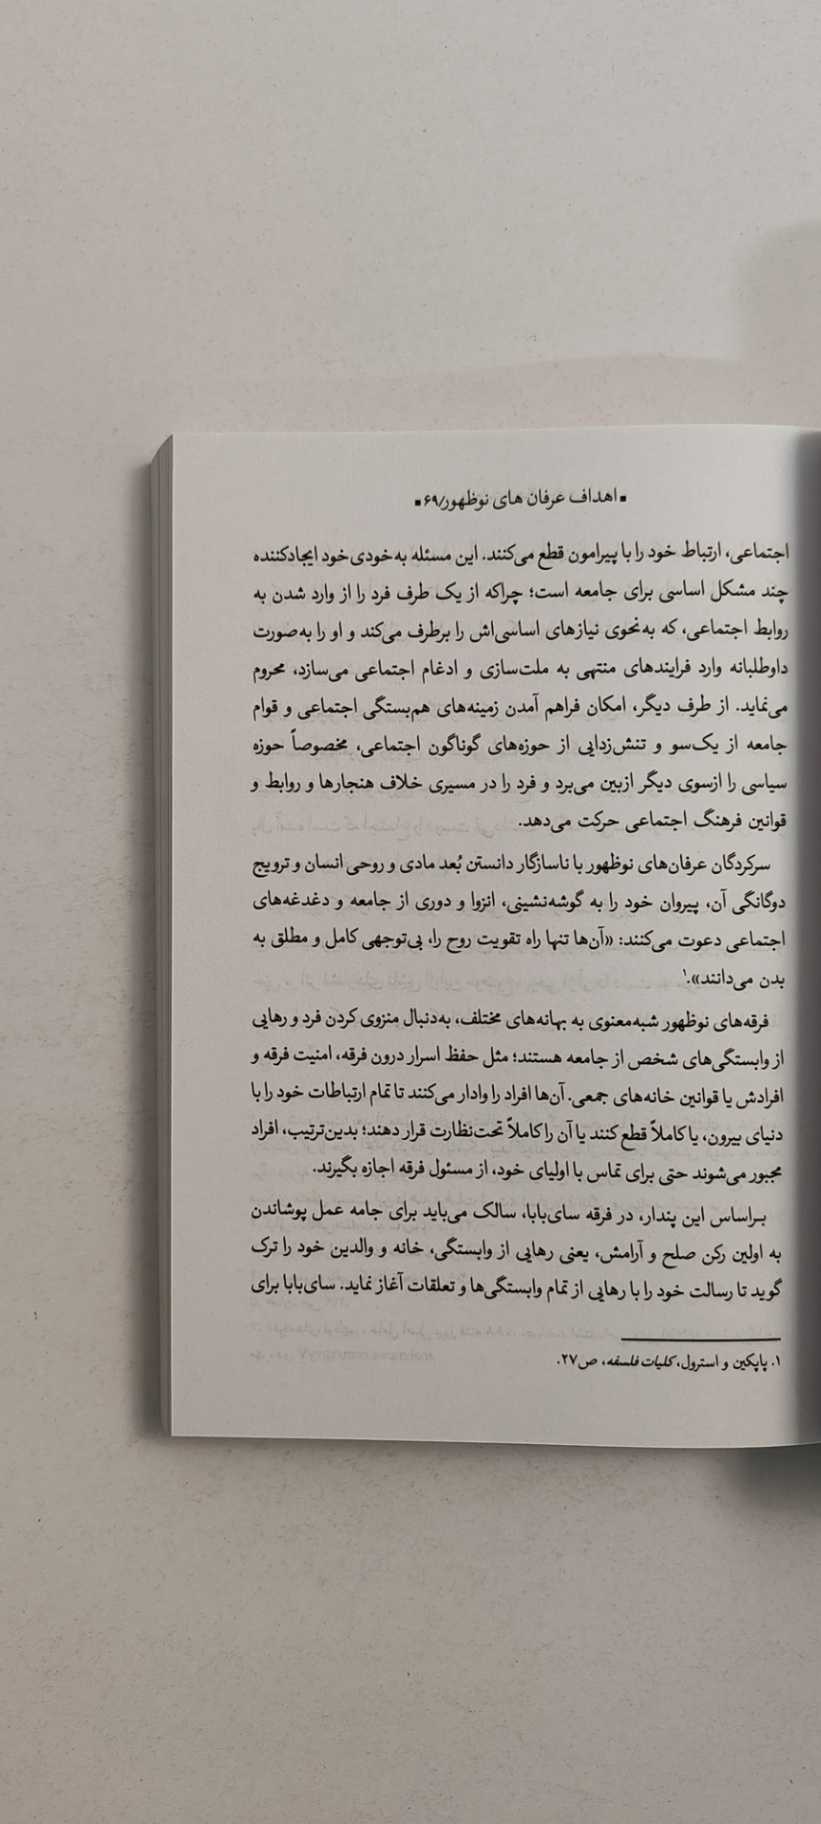 ▪ اهداف عرفان های نوظهور/۶۹ ▪
اجتماعی، ارتباط خود را با پیرامون قطع می‌کنند. این مسئله به‌خودی‌خود ایجادکننده
چند مشکل اساسی برای جامعه است؛ چراکه از یک طرف فرد را از وارد شدن به
روابط اجتماعی، که به‌نحوی نیازهای اساسی‌اش را برطرف می‌کند و او را به‌صورت
داوطلبانه وارد فرایندهای منتهی به ملت‌سازی و ادغام اجتماعی می‌سازد، محروم
می‌نماید. از طرف دیگر، امکان فراهم آمدن زمینه‌های هم‌بستگی اجتماعی و قوام
جامعه از یک‌سو و تنش‌زدایی از حوزه‌های گوناگون اجتماعی، مخصوصاً حوزه
سیاسی را ازسوی دیگر ازبین می‌برد و فرد را در مسیری خلاف هنجارها و روابط و
قوانین فرهنگ اجتماعی حرکت می‌دهد.
سرکردگان عرفان‌های نوظهور با ناسازگار دانستن بُعد مادی و روحی انسان و ترویج
دوگانگی آن، پیروان خود را به گوشه‌نشینی، انزوا و دوری از جامعه و دغدغه‌های
اجتماعی دعوت می‌کنند: «آن‌ها تنها راه تقویت روح را، بی‌توجهی کامل و مطلق به
بدن می‌دانند».۱
فرقه‌های نوظهور شبه‌معنوی به بهانه‌های مختلف، به‌دنبال منزوی کردن فرد و رهایی
از وابستگی‌های شخص از جامعه هستند؛ مثل حفظ اسرار درون فرقه، امنیت فرقه و
افرادش یا قوانین خانه‌های جمعی. آن‌ها افراد را وادار می‌کنند تا تمام ارتباطات خود را با
دنیای بیرون، یا کاملاً قطع کنند یا آن را کاملاً تحت‌نظارت قرار دهند؛ بدین‌ترتیب، افراد
مجبور می‌شوند حتی برای تماس با اولیای خود، از مسئول فرقه اجازه بگیرند.
براساس این پندار، در فرقه سای‌بابا، سالک می‌باید برای جامه عمل پوشاندن
به اولین رکن صلح و آرامش، یعنی رهایی از وابستگی، خانه و والدین خود را ترک
گوید تا رسالت خود را با رهایی از تمام وابستگی‌ها و تعلقات آغاز نماید. سای‌بابا برای
۱. پاپکین و استرول، کلیات فلسفه، ص۲۷.